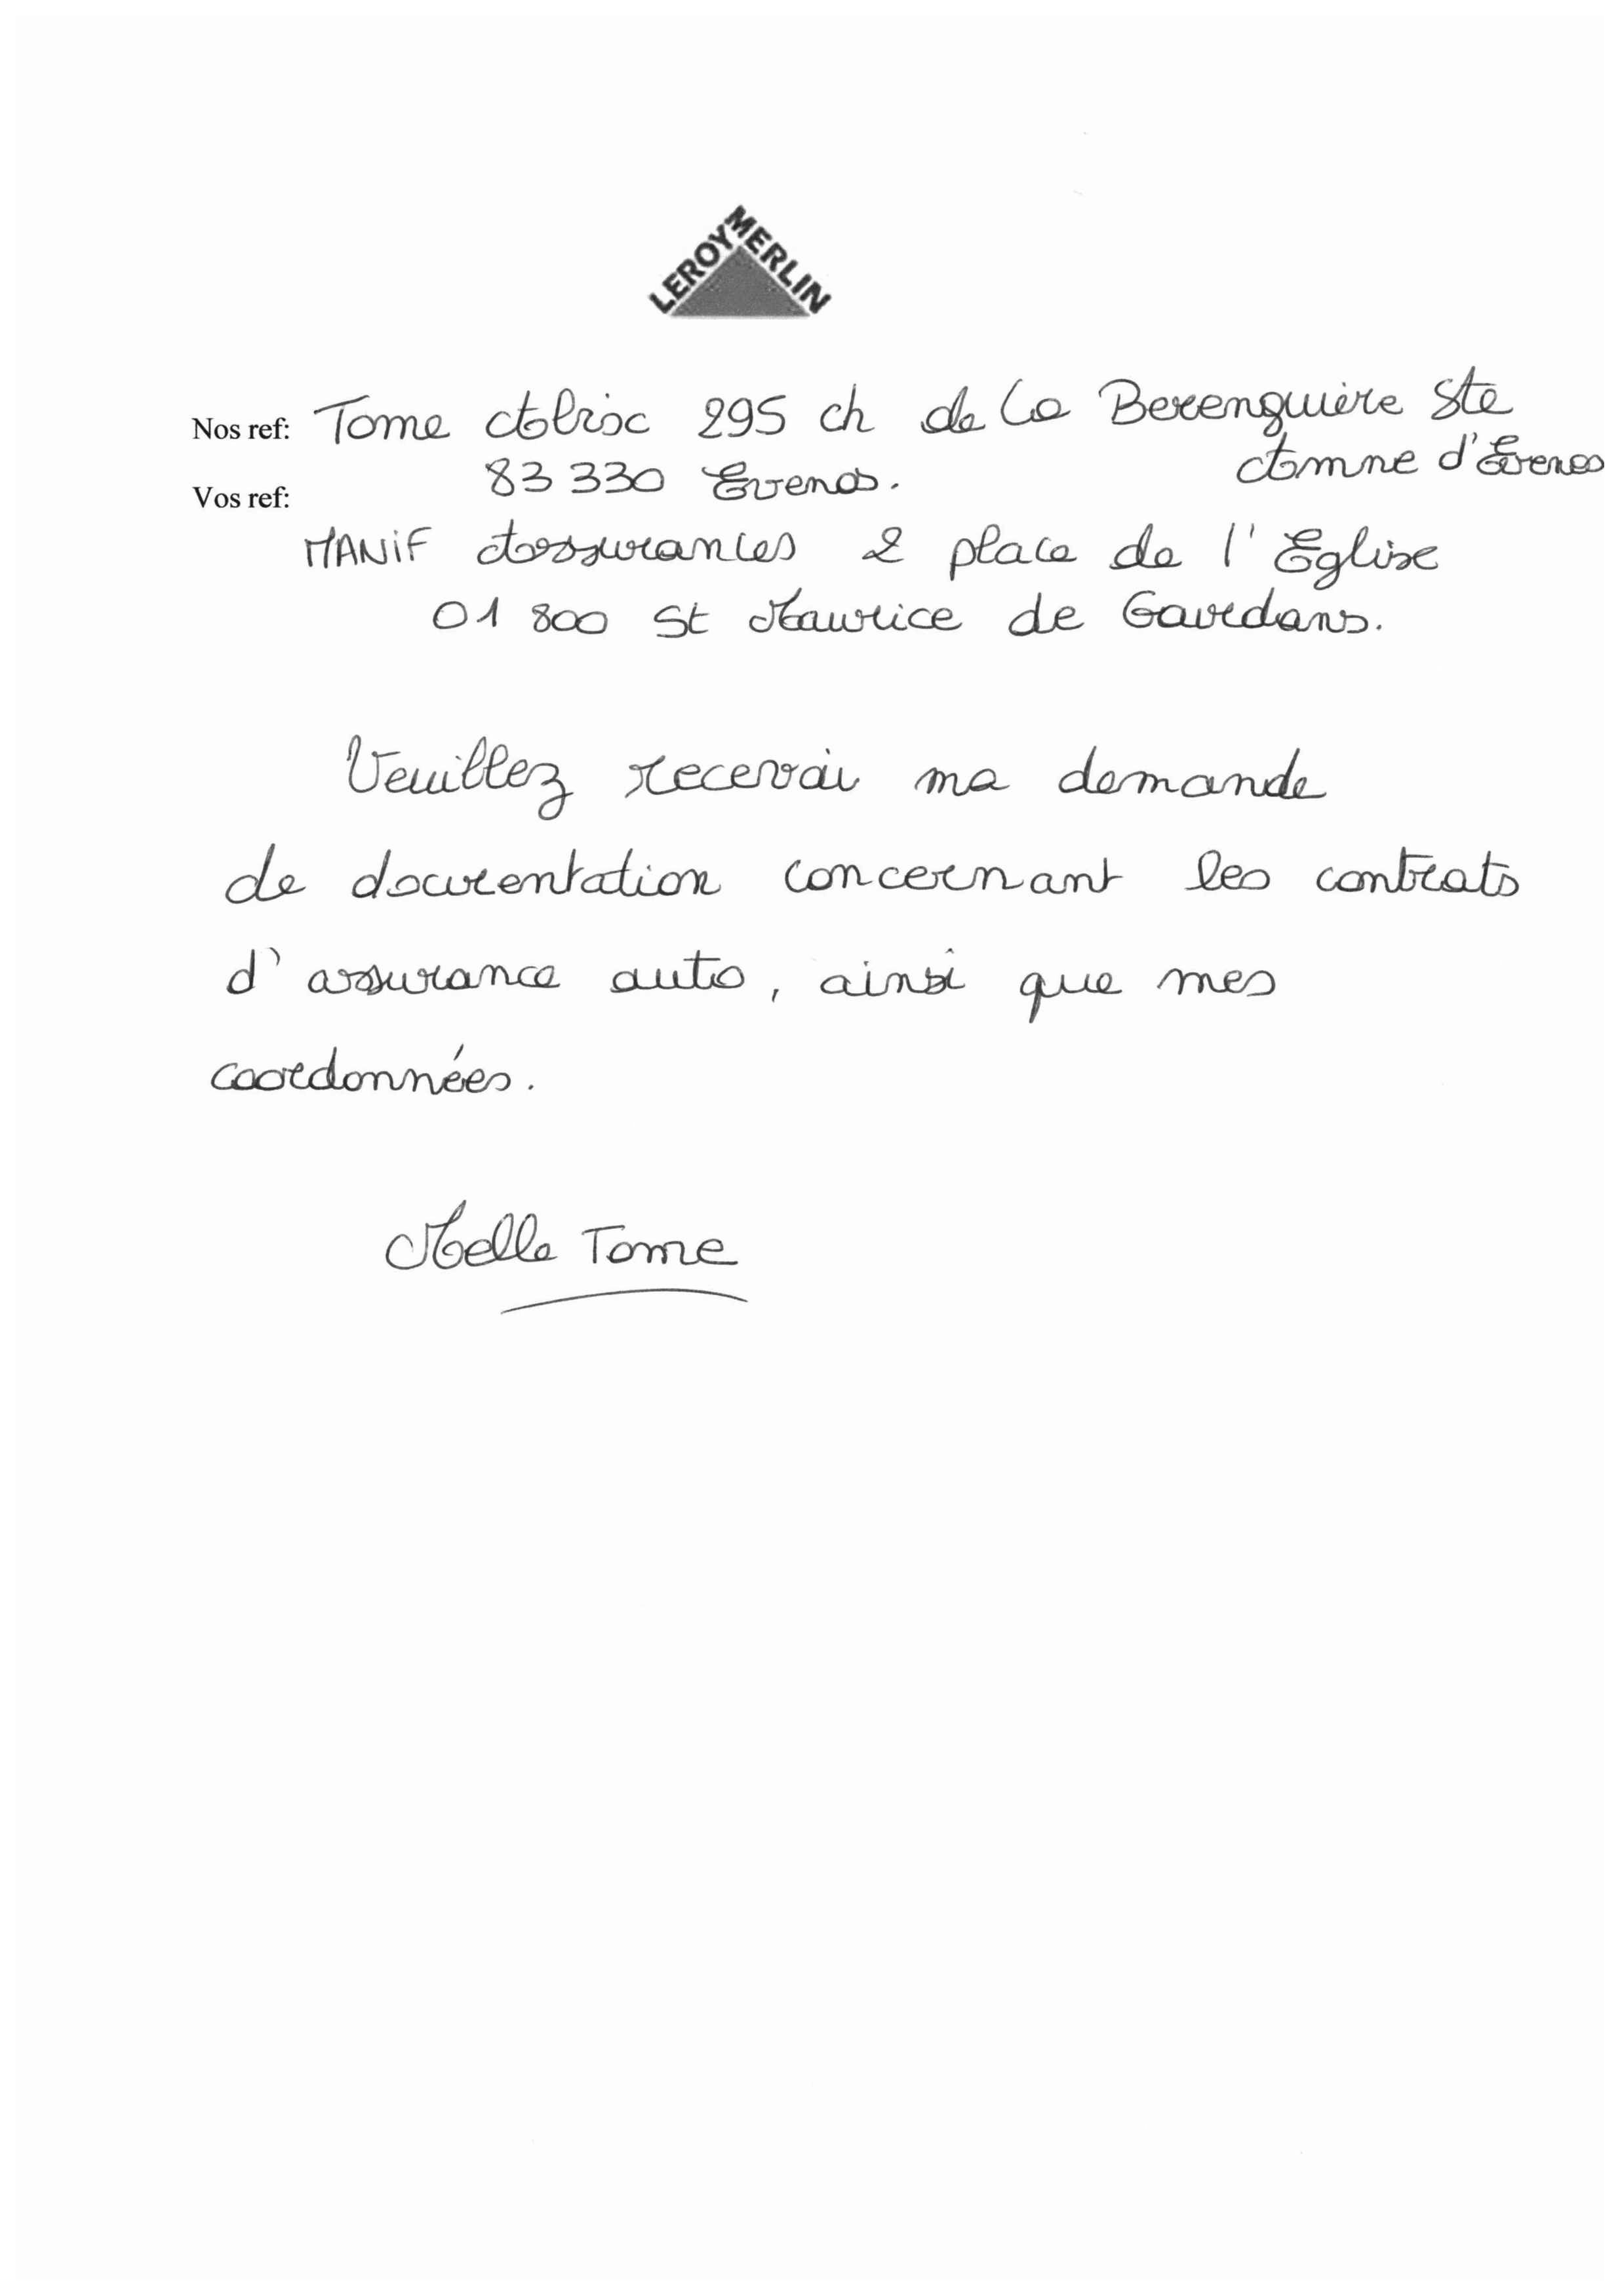 LEROY MERLIN
Nos ref: Tome 295 ch de La Berenguière Ste
Anne d'Evenos
83 330 Evenos.
Vos ref:
MANiF Assurances 2 place de l'Eglise
01 800 St Maurice de Gourdans.
Veuillez recevoir ma demande
de documentation concernant les contrats
d'assurance auto, ainsi que mes
coordonnées.
Melle Tome